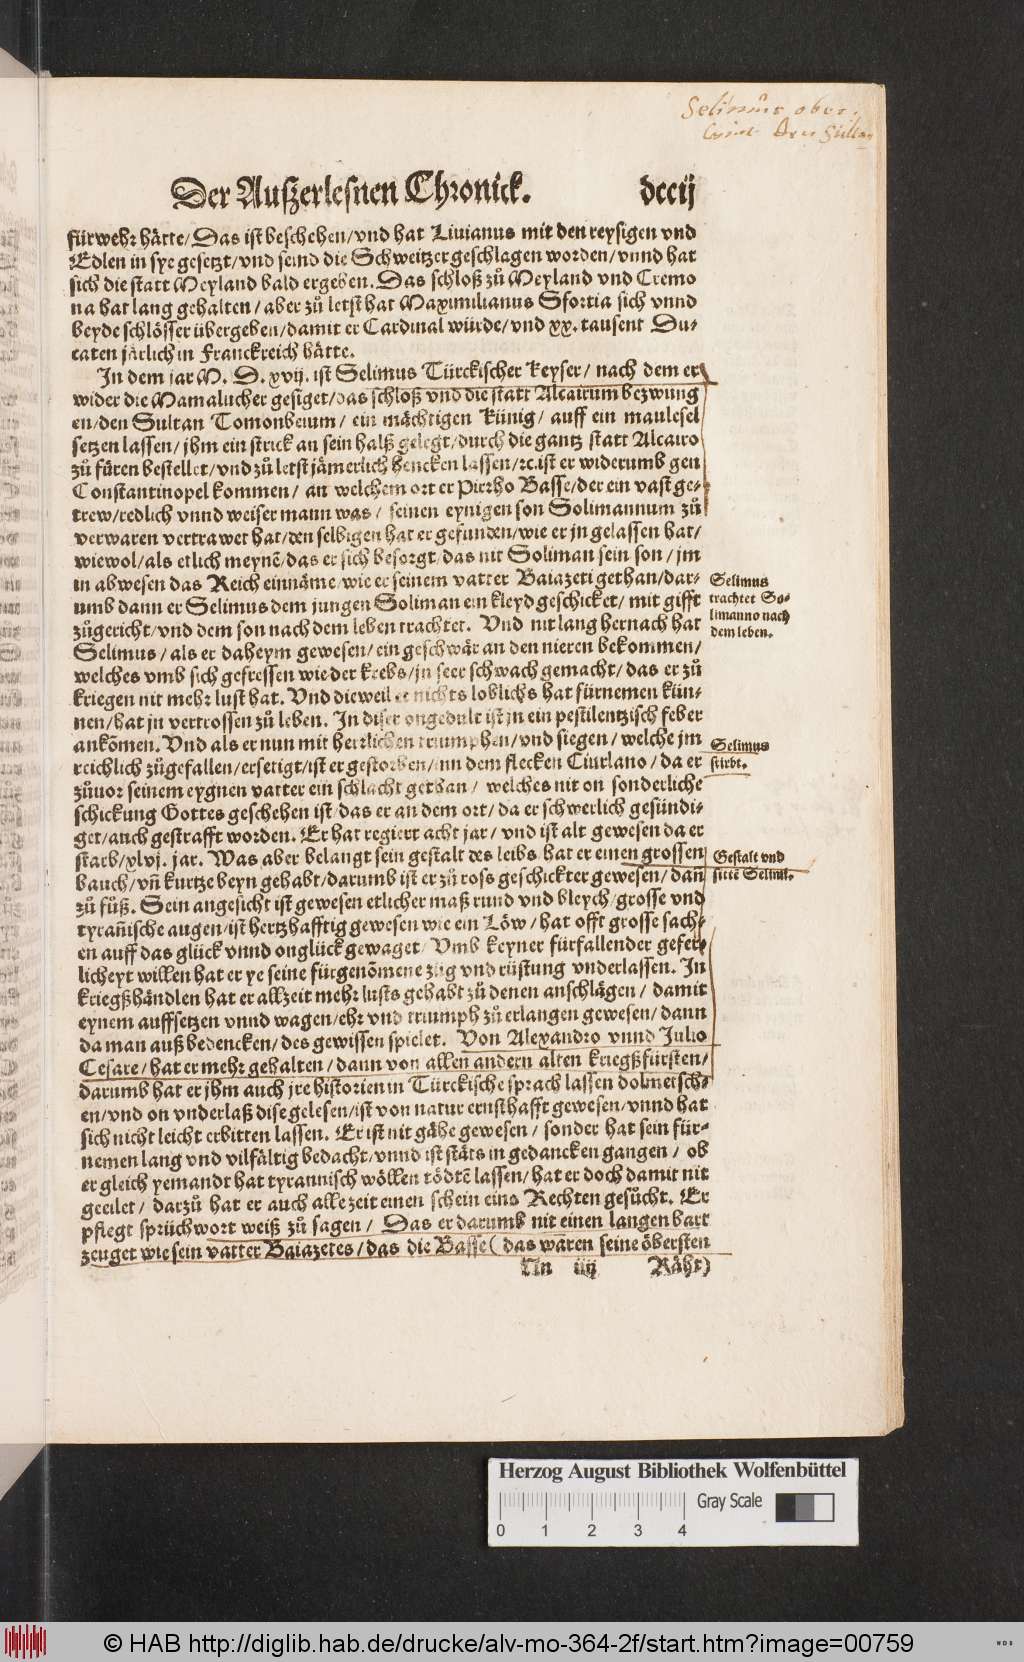 Selimus ober.
Der Außerlesnen Chronick. dccij
fürwehr hätte/Das ist beschehen/vnd hat Liuianus mit den reysigen vnd
Edlen in sye gesetzt/vnd seind die Schweitzer geschlagen worden/vnnd hat
sich die statt Meyland bald ergeben. Das schloß zů Meyland vnd Cremo
na hat lang gehalten/aber zů letst hat Maximilianus Sfortia sich vnnd
beyde schlösser übergeben/damit er Cardinal würde/vnd xx. tausent Du⸗
caten järlich in Franckreich hätte.
In dem jar M. D. xvij. ist Selimus Türckischer Keyser/ nach dem er
wider die Mamalucher gesiget/das schloß vnd die statt Alcairum bezwung
en/den Sultan Tomonbeium/ ein mächtigen Künig/ auff ein maulesel
setzen lassen/jhm ein strick an sein halß gelegt/durch die gantz statt Alcairo
zů füren bestellet/vnd zů letst jämerlich hencken lassen/ꝛc.ist er widerumb gen
Constantinopel kommen/ an welchem ort er Pirrho Basse/der ein vast ge⸗
trew/redlich vnnd weiser mann was/ seinen eynigen son Solimannum zů
verwaren vertrawet hat/den selbigen hat er gefunden/wie er jn gelassen hat/
wiewol/als etlich meynẽ/das er sich besorgt/das nit Soliman sein son/jm
in abwesen das Reich einnäme/wie er seinem vatter Baiazeti gethan/dar⸗
umb dann er Selimus dem jungen Soliman ein kleyd geschicket/ mit gifft
zůgericht/vnd dem son nach dem leben trachtet. Vnd nit lang hernach hat
Selimus/als er daheym gewesen/ein geschwär an den nieren bekommen/
welches vmb sich gefressen wie der krebs/jn seer schwach gemacht/das er zů
kriegen nit mehr lust hat. Vnd dieweil er nichts loblichs hat fürnemen kün⸗
nen/hat jn vertrossen zů leben. In diser ongedult ist jn ein pestilentzisch feber
ankõmen. Vnd als er nun mit herrlichen triumphen/vnd siegen/welche jm
reichlich zůgefallen/ersetigt/ist er gestorben/inn dem flecken Ciurlano/da er
zůuor seinem eygnen vatter ein schlacht gethan/ welches nit on sonderliche
schickung Gottes geschehen ist/das er an dem ort/da er schwerlich gesündi⸗
get/auch gestrafft worden. Er hat regiert acht jar/vnd ist alt gewesen da er
starb/xlvj. jar. Was aber belangt sein gestalt des leibs hat er einen grossen
bauch/vñ kurtze beyn gehabt/darumb ist er zů ross geschickter gewesen/dañ
zů fůß. Sein angesicht ist gewesen etlicher maß rund vnd bleych/grosse vnd
tyrañische augen/ist hertzhafftig gewesen wie ein Löw/hat offt grosse sach⸗
en auff das glück vnnd onglück gewaget/ Vmb keyner fürfallender gefer⸗
licheyt willen hat er ye seine fürgenõmene züg vnd rüstung vnderlassen. In
kriegßhändlen hat er allzeit mehr lusts gehabt zů denen anschlägen/ damit
eynem auffsetzen vnnd wagen/ehr vnd triumph zů erlangen gewesen/dann
da man auß bedencken/des gewissen spielet. Von Alexandro vnnd Julio
Cesare/hat er mehr gehalten/dann von allen andern alten kriegßfürsten/
darumb hat er jhm auch jre historien in Türckische sprach lassen dolmetsch⸗
en/vnd on vnderlaß dise gelesen/ist von natur ernsthafft gewesen/vnnd hat
sich nicht leicht erbitten lassen. Er ist nit gähe gewesen/ sonder hat sein für⸗
nemen lang vnd vilfältig bedacht/vnnd ist stäts in gedancken gangen/ ob
er gleich yemandt hat tyrannisch wöllen tödtẽ lassen/hat er doch damit nit
geeilet/ darzů hat er auch allezeit einen schein eins Rechten gesůcht. Er
pflegt sprüchwort weiß zů sagen/ Das er darumb nit einen langen bart
zeuget wie sein vatter Baiazetes/das die Basse (das waren seine öbersten
Nn iiij Räht)
Selimus
trachtet So⸗
limanno nach
dem leben.
Selimus
stirbt.
Gestalt vnd
sittẽ Selimi.
Herzog August Bibliothek Wolfenbüttel
Gray Scale
0 1 2 3 4
© HAB http://diglib.hab.de/drucke/alv-mo-364-2f/start.htm?image=00759